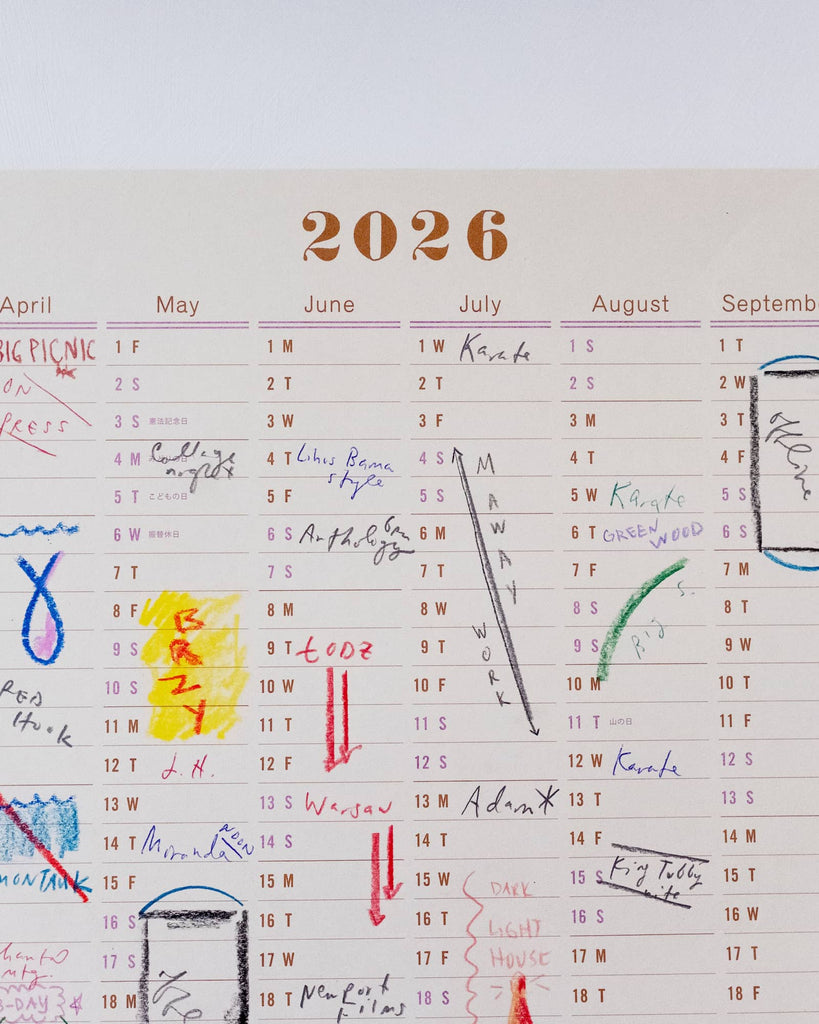 2026
April
BIG PICNIC
ON
PRESS
RED
Hook
MONTAUK
mtg.
B-DAY
May
1 F
2 S
3 S 憲法記念日
4 M College
5 T こどもの日
6 W 振替休日
7 T
8 F
9 S
10 S
11 M
BRZY
12 T J.H.
13 W
14 T Moranda NOON
15 F
16 S
17 S
18 M
June
1 M
2 T
3 W
4 T Bama
style
5 F
6 S Anthology 6pm
7 S
8 M
9 T ŁODZ
10 W
11 T
12 F
13 S Warsaw
14 S
15 M
16 T
17 W
18 T Newport
Films
July
1 W Karate
2 T
3 F
4 S
5 S
6 M
7 T
8 W
9 T
10 F
11 S
12 S
MAWAY WORK
13 M Adam
14 T
15 W DARK
16 T LIGHT
17 F HOUSE
18 S
August
1 S
2 S
3 M
4 T
5 W Karate
6 T GREEN WOOD
7 F
8 S
9 S Big S.
10 M
11 T 山の日
12 W Karate
13 T
14 F
15 S King Tubby
nite
16 S
17 M
18 T
Septemb
1 T
2 W
3 T
4 F
5 S
6 S
offline
7 M
8 T
9 W
10 T
11 F
12 S
13 S
14 M
15 T
16 W
17 T
18 F